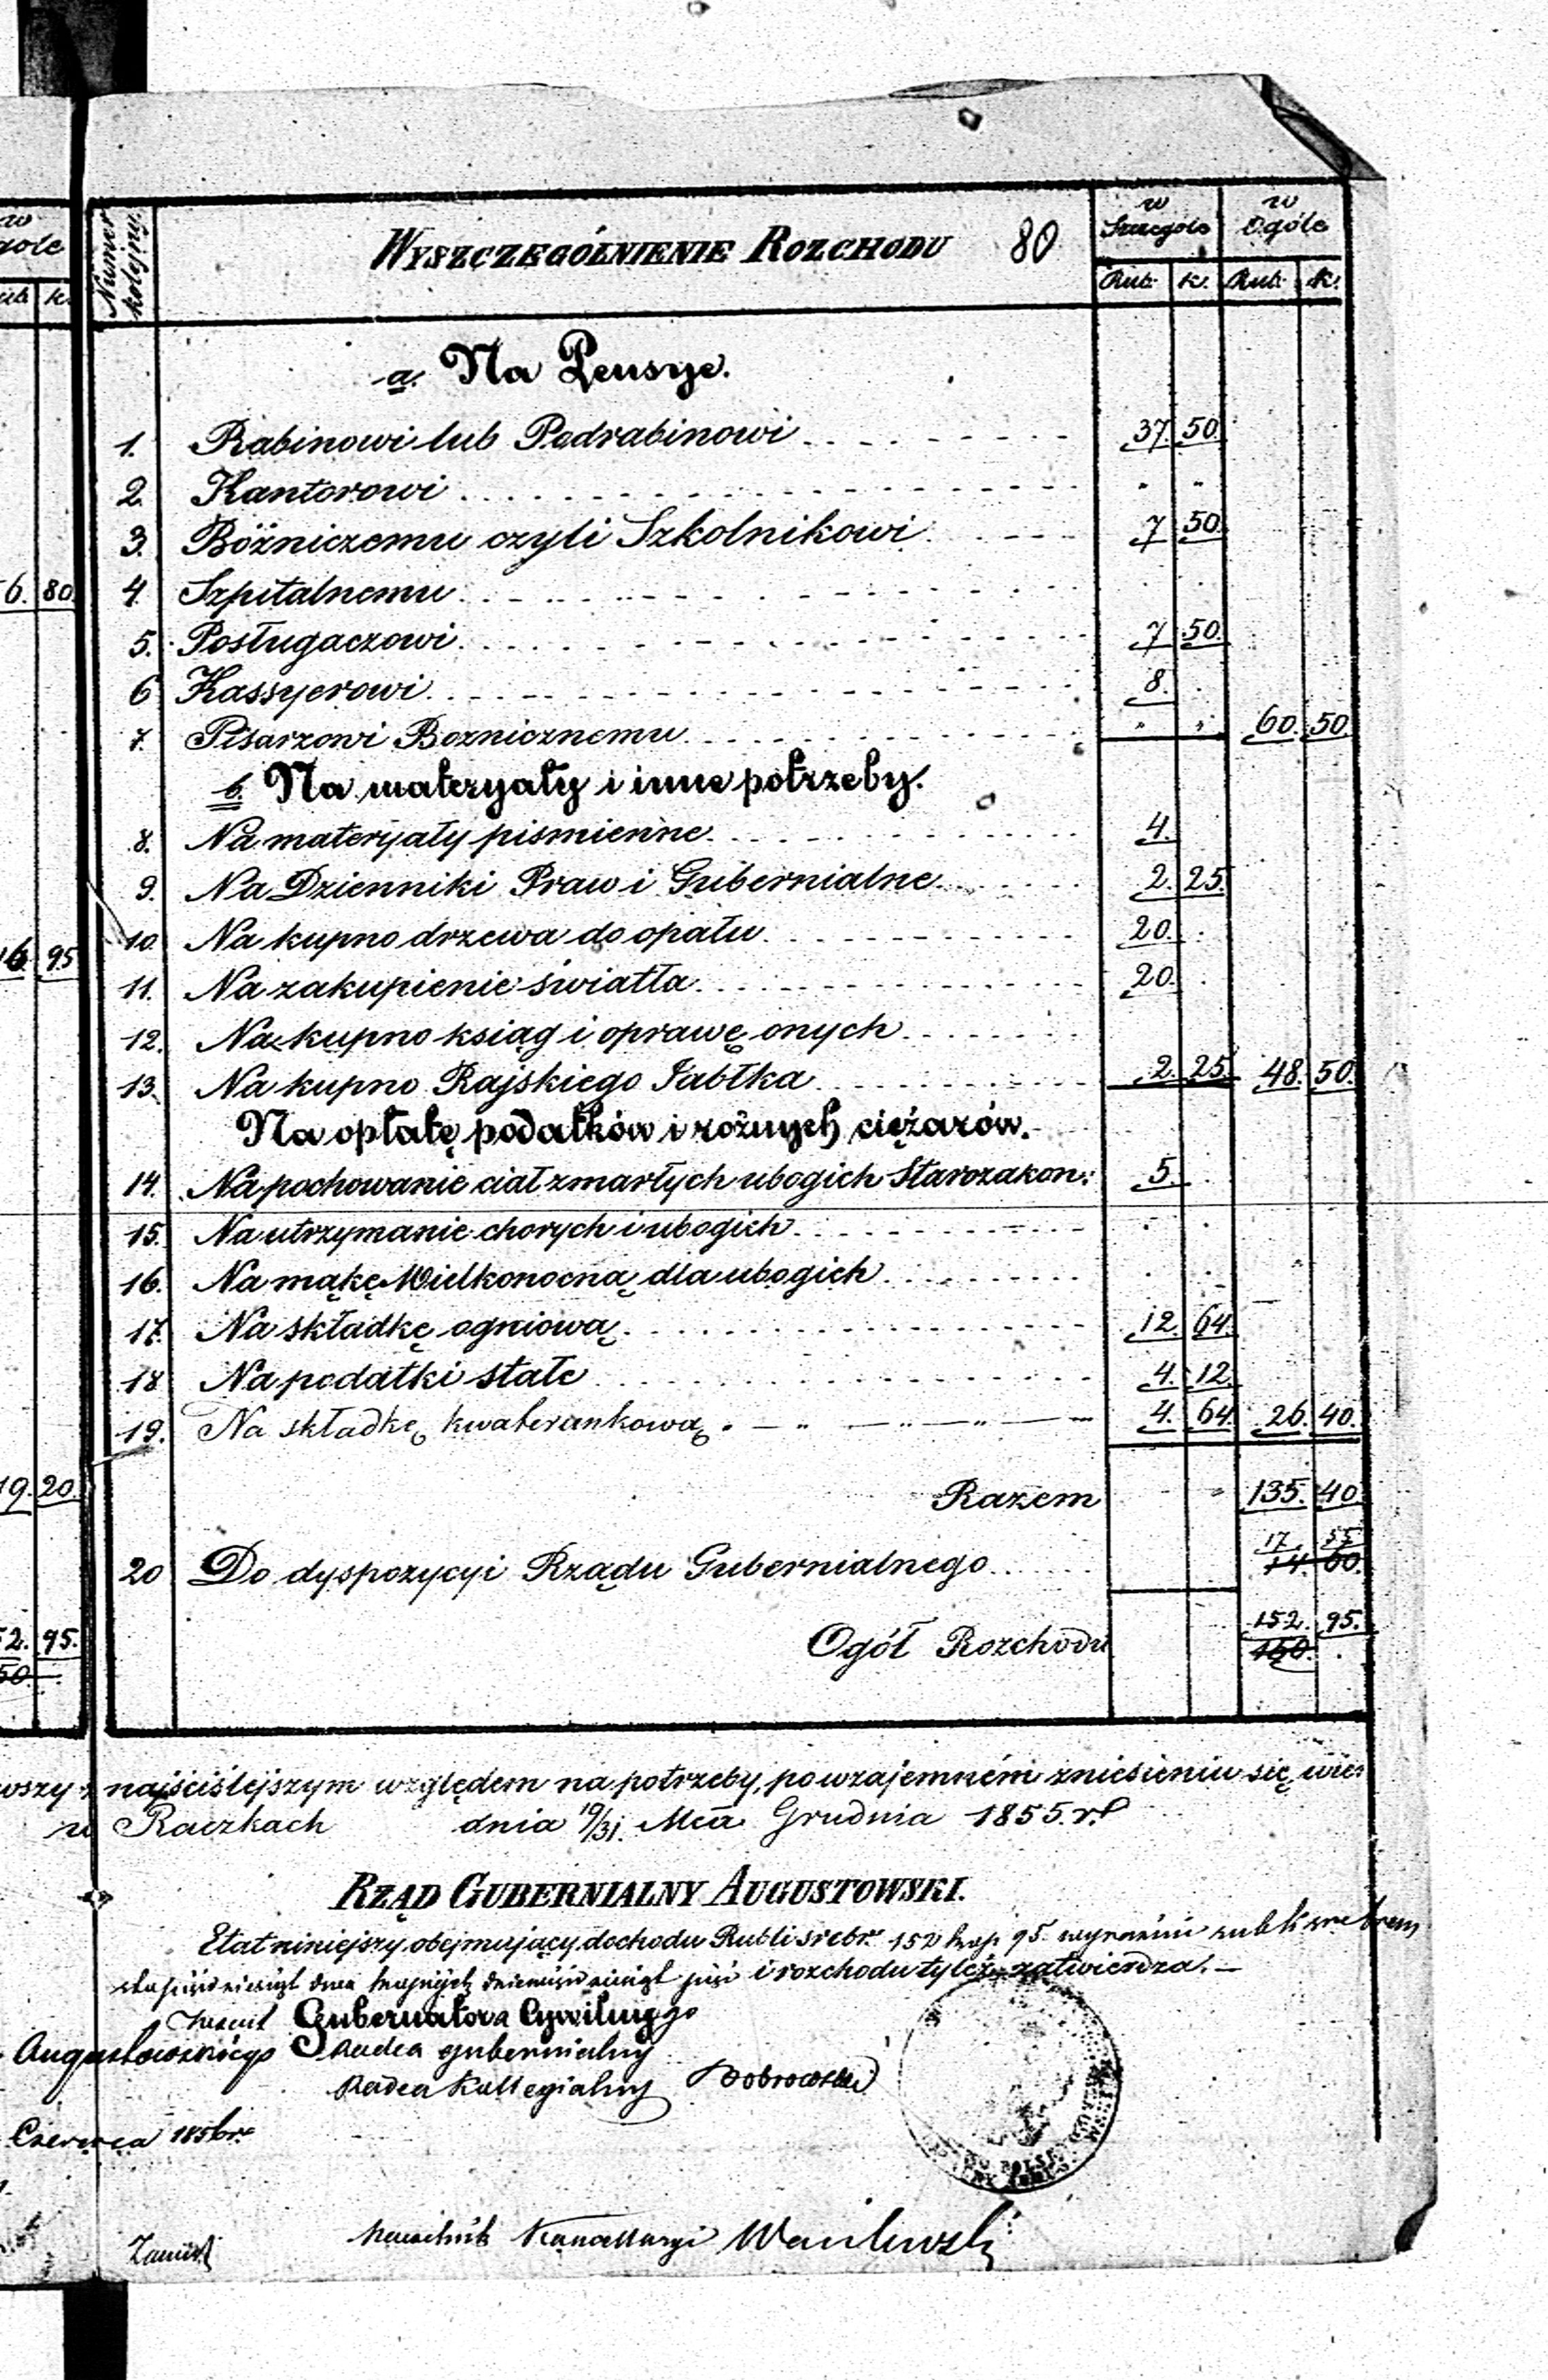 w
Ogóle
Rub. k.
6. 80.
16. 95
19. 20.
52. 95.
50.
Numer kolejny.
WYSZCZEGÓLNIENIE ROZCHODU 80
w Szczególe w Ogóle
Rub. k. Rub. k.
a. Na Pensye.
1. Rabinowi lub Podrabinowi 37. 50.
2. Kantorowi " "
3. Bóżniczemu czyli Szkolnikowi 7 50.
4. Szpitalnemu
5. Posługaczowi 7 50.
6 Kassyerowi 8.
7. Pisarzowi Boznicznemu " " 60. 50.
b. Na materyały i inne potrzeby.
8. Na materyały pismienne 4.
9. Na Dzienniki Praw i Gubernialne 2. 25.
10. Na kupno drzewa do opału 20.
11. Na zakupienie światła 20.
12. Na kupno ksiąg i oprawę onych
13. Na kupno Rajskiego Jabłka 2. 25. 48. 50.
Na opłatę podatków i rożnych ciężarów.
14. Na pochowanie ciał zmarłych ubogich Starozakon: 5.
15. Na utrzymanie chorych i ubogich
16. Na mąkę Wielkonocną dla ubogich
17. Na składkę ogniową 12. 64.
18 Na podatki stałe 4. 12.
19. Na składkę kwaterunkową 4. 64. 26. 40.
Razem 135. 40
17. 55
20 Do dyspozycyi Rządu Gubernialnego 14. 60.
152. 95.
Ogół Rozchodu 150.
wszy z najściślejszym względem na potrzeby, po wzajemném zniesieniu się wie:
w Raczkach dnia 19/31. Mca Grudnia 1855. r.
RZĄD GUBERNIALNY AUGUSTOWSKI.
Etat niniejszy obejmujący dochodu Rubli srebr. 152 kop 95. wyraźnie rubli srebrem
sto pięćdziesiąt dwa kopiejek dziewięćdziesiąt pięć i rozchodu tyleż zatwierdza. —
Gubernatora Cywilnego
Augustowskiego Radca Gubernialny
Radca Kollegialny Dobrowolski
Czerwca 1856 r.
Naczelnik Kancellaryi